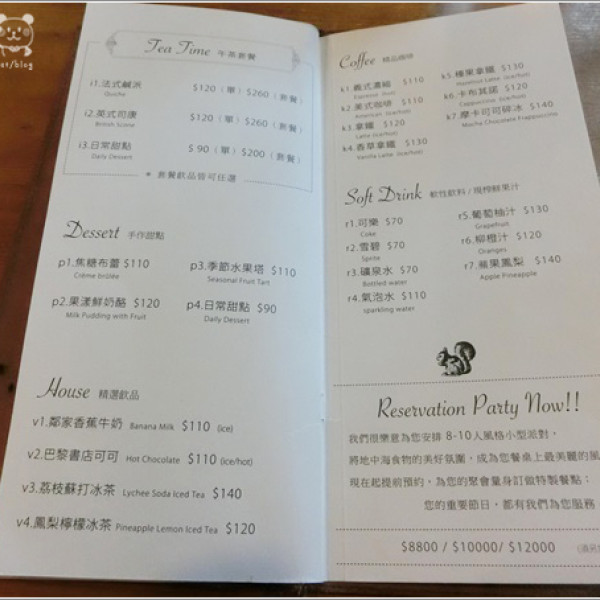 Tea Time 午茶套餐
i1.法式鹹派 $120（單）$260（套餐）
Quiche
i2.英式司康 $120（單）$260（套餐）
British Scone
i3.日常甜點 $ 90（單）$200（套餐）
Daily Dessert
套餐飲品皆可任選
Dessert 手作甜點
p1.焦糖布蕾 $110
Crème brûlée
p3.季節水果塔 $110
Seasonal Fruit Tart
p2.果漾鮮奶酪 $120
Milk Pudding with Fruit
p4.日常甜點 $90
Daily Dessert
House 精選飲品
v1.鄰家香蕉牛奶 Banana Milk $110 (ice)
v2.巴黎書店可可 Hot Chocolate $110 (ice/hot)
v3.荔枝蘇打冰茶 Lychee Soda Iced Tea $140
v4.鳳梨檸檬冰茶 Pineapple Lemon Iced Tea $120
Coffee 精品咖啡
k1.義式濃縮 $110
Espresso (hot)
k2.美式咖啡 $110
American (ice/hot)
k3.拿鐵 $120
Latte (ice/hot)
k4.香草拿鐵 $130
Vanilla Latte (ice/hot)
k5.榛果拿鐵 $130
Hazelnut Latte (ice/hot)
k6.卡布其諾 $120
Cappuccino (ice/hot)
k7.摩卡可可碎冰 $140
Mocha Chocolate Frappuccino
Soft Drink 軟性飲料 / 現榨鮮果汁
r1.可樂 $70
Coke
r2.雪碧 $70
Sprite
r3.礦泉水 $70
Bottled water
r4.氣泡水 $110
sparkling water
r5.葡萄柚汁 $130
Grapefruit
r6.柳橙汁 $120
Oranges
r7.蘋果鳳梨 $140
Apple Pineapple
Reservation Party Now!!
我們很樂意為您安排 8-10人風格小型派對，
將地中海食物的美好氛圍，成為您餐桌上最美麗的風
現在起提前預約，為您的聚會量身訂做特製餐點；
您的重要節日，都有我們為您服務
$8800 / $10000/ $12000